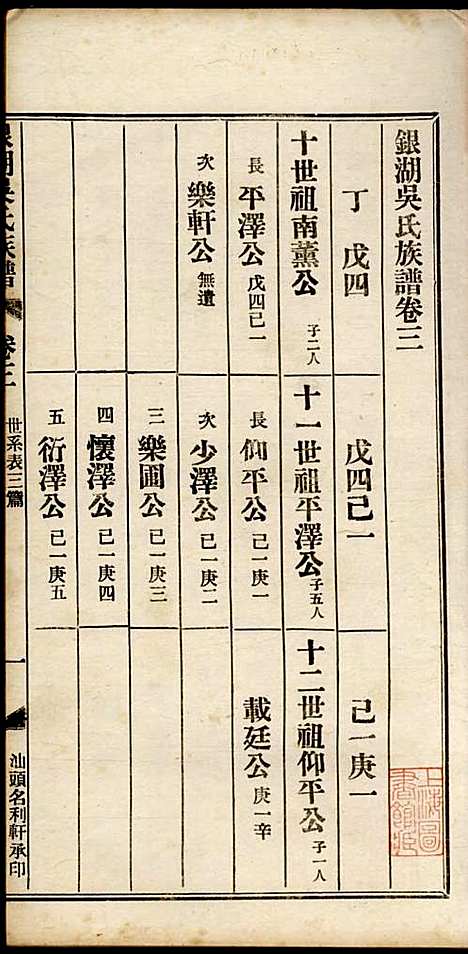 銀湖吳氏族譜卷三
丁 戊四
戊四己一
己一庚一
十世祖南薰公 子二人
十一世祖平澤公 子五人
十二世祖仰平公 子一人
長 平澤公 戊四己一
長 仰平公 己一庚一
載廷公 庚一辛一
次 樂軒公 無遺
次 少澤公 己一庚二
三 樂圃公 己一庚三
四 懷澤公 己一庚四
五 衍澤公 己一庚五
銀湖吳氏族譜 卷三 世系表三篇 一 汕頭名利軒承印
上海圖書館藏